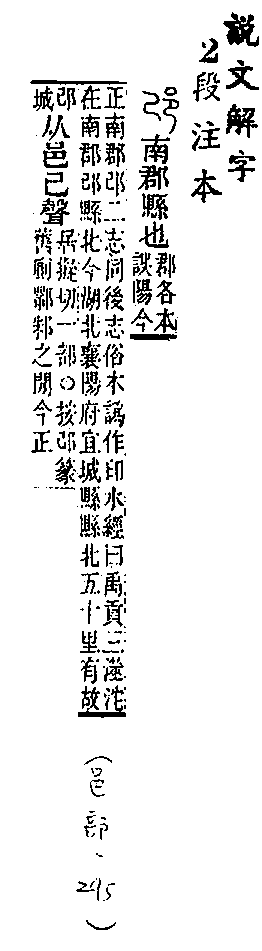 說文解字
2段注本
邔南郡縣也郡各本
誤陽今
正南郡邔二志同後志俗本譌作印水經曰禹貢三澨沱
在南郡邔縣北今湖北襄陽府宜城縣縣北五十里有故
邔城从邑己聲居擬切一部○按邔篆
舊廁鄢邾之閒今正
(邑部、295)